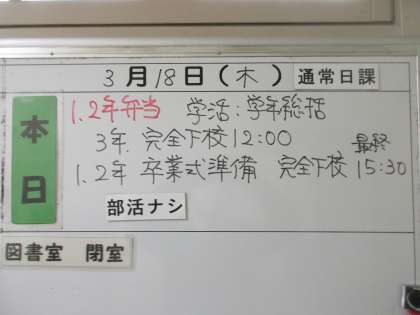 3月18日(木) 通常日課
本日
1,2年弁当 学活:学年総括
3年. 完全下校12:00
1,2年 卒業式準備 完全下校 最終15:30
部活ナシ
図書室 閉室